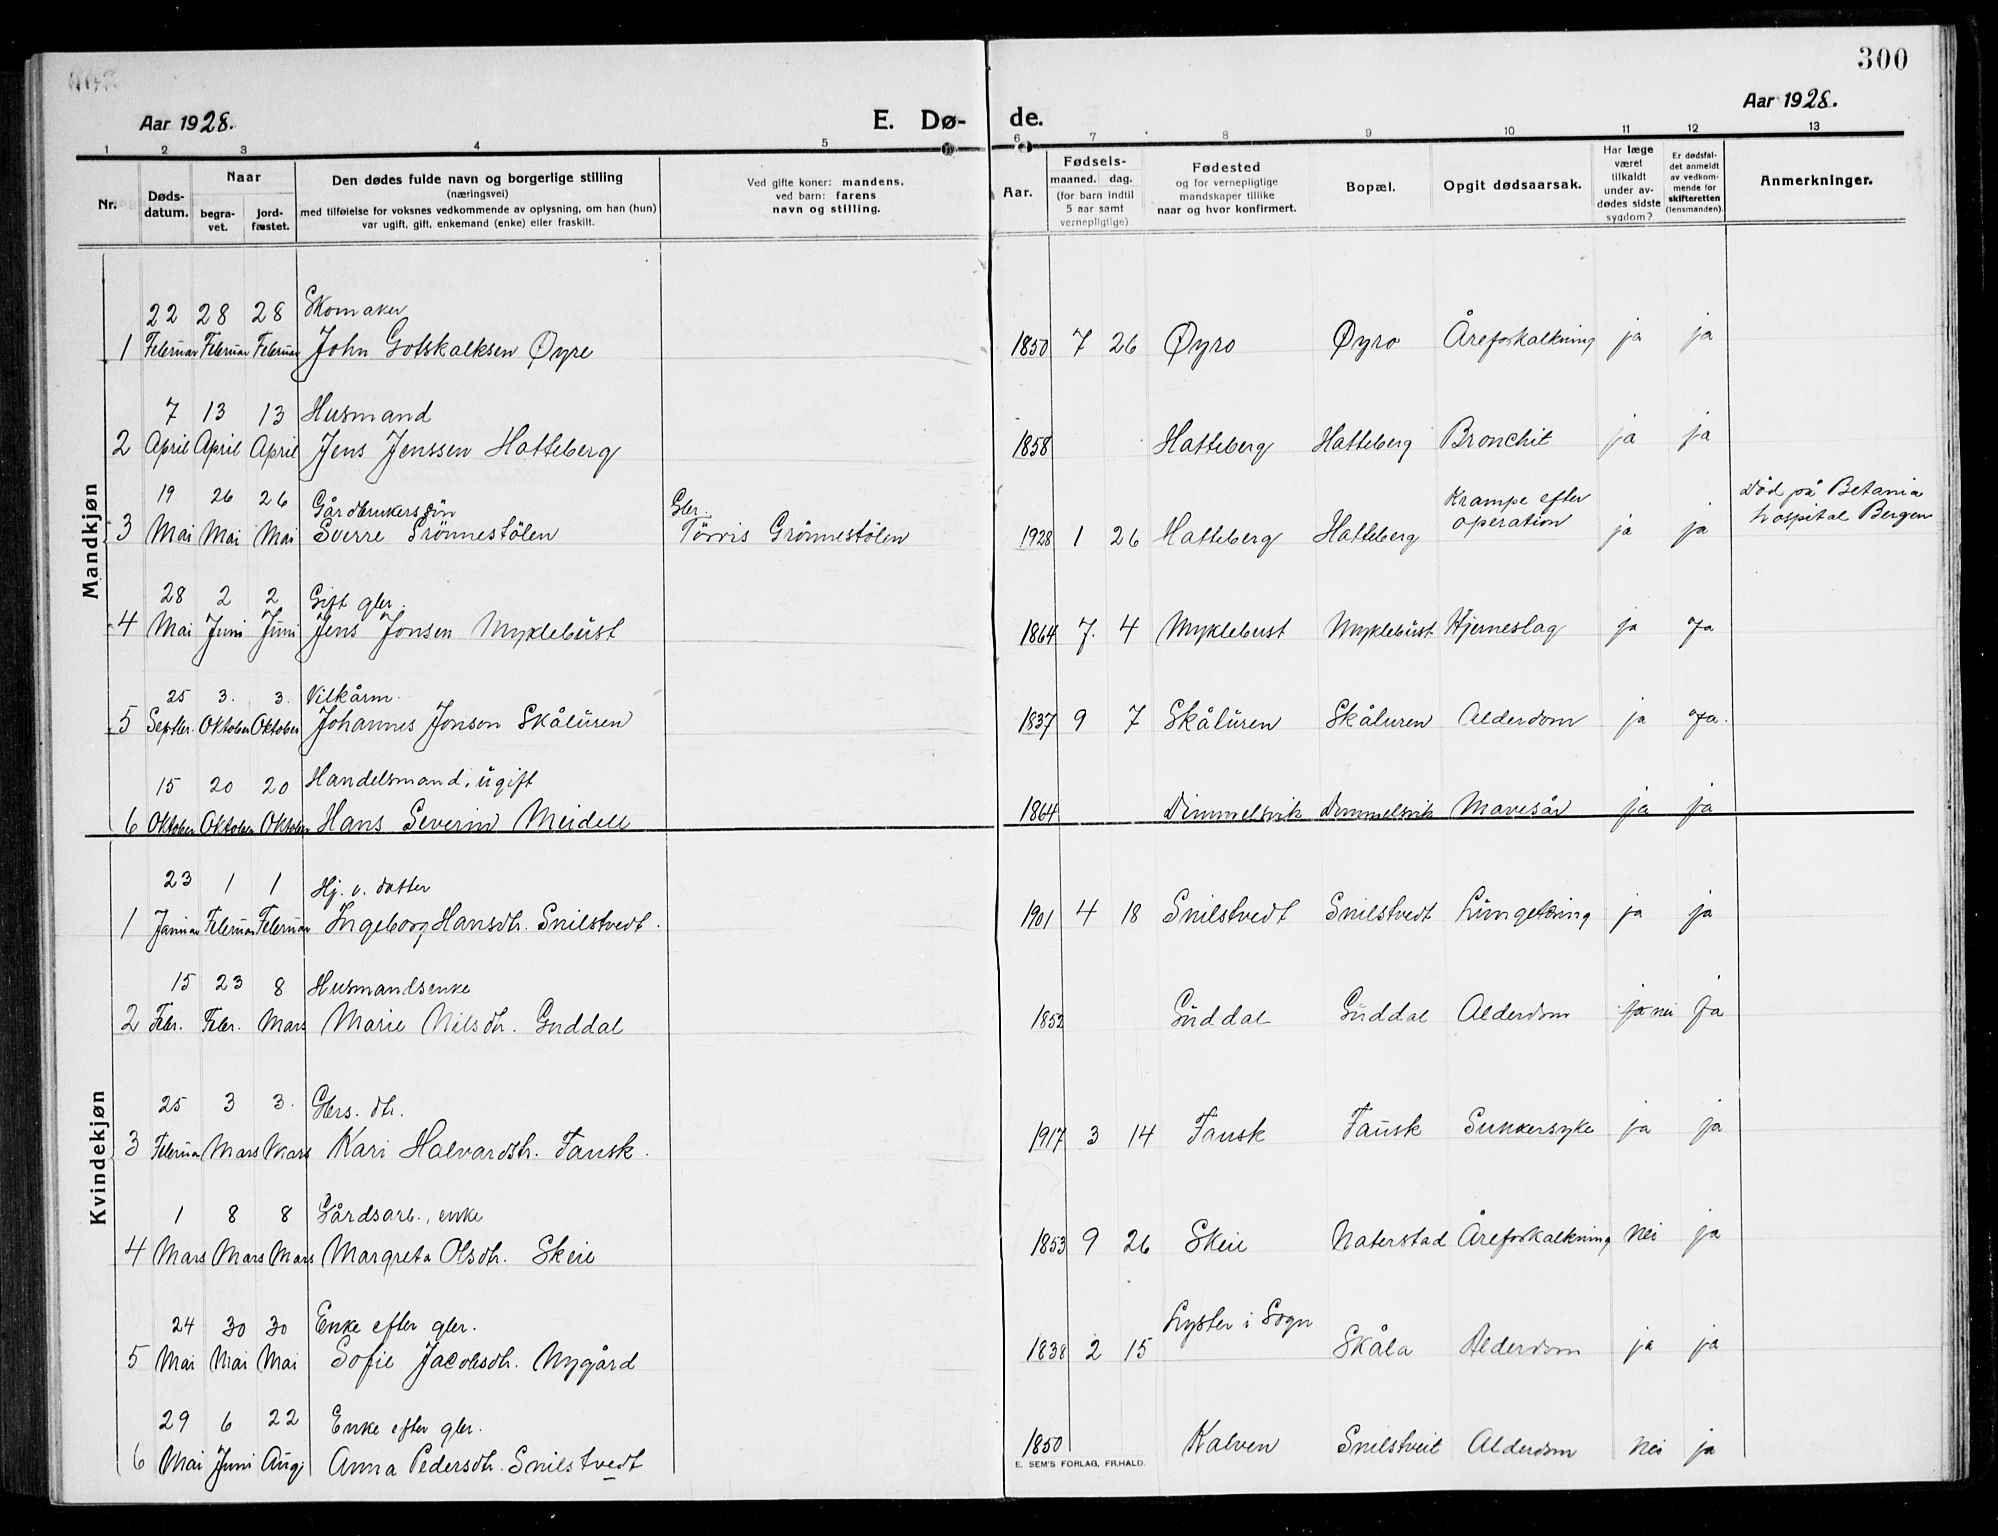 300
Aar 1928.
E. Dø-
de.
Aar 1928.
1 2 3 4 5 6 7 8 9 10 11 12 13
Nr.
Døds-
datum.
Naar
begra-
vet.
jord-
fæstet.
Den dødes fulde navn og borgerlige stilling
(næringsvei)
med tilføielse for voksnes vedkommende av oplysning, om han (hun)
var ugift, gift, enkemand (enke) eller fraskilt.
Ved gifte koner: mandens,
ved barn: farens
navn og stilling.
Aar.
Fødsels-
maaned. dag.
(for barn indtil
5 aar samt
vernepligtige)
Fødested
og for vernepligtige
mandskaper tillike
naar og hvor konfirmert.
Bopæl.
Opgit dødsaarsak.
Har læge
været
tilkaldt
under av-
dødes sidste
sygdom?
Er dødsfal-
det anmeldt
av vedkom-
mende for
skifteretten
(lensmanden).
Anmerkninger.
Mandkjøn
22 28 28 Skomaker
1 Februar Februar Februar John Gotskalksen Øyre 1850 7 26 Øyro Øyro Åreforkalkning ja ja
7 13 13 Husmand
2 April April April Jens Jenssen Hatteberg 1858 Hatteberg Hatteberg Bronchit ja ja
19 26 26 Gårdbrukersøn Gbr. Krampe efter Død på Betania
3 Mai Mai Mai Sverre Grönnestölen Torvis Grönnestölen 1928 1 26 Hatteberg Hatteberg operation ja ja hospital Bergen
28 2 2 Gift gbr.
4 Mai Juni Juni Jens Jonsen Myklebust 1864 7. 4 Myklebust Myklebust Hjerneslag ja Ja
25 3. 3. Vilkårm.
5 Septbr. Oktober Oktober Johannes Jonson Skåluren 1837 9 7 Skåluren Skåluren Alderdom ja Ja.
15 20 20 Handelsmand, ugift
6 Oktober Oktober Oktober Hans Severin Meidell 1864 Dimmelsvik Dimmelsvik Mavesår ja ja
Kvindekjøn
23 1 1 Hj. v. datter
1 Januar Februar Februar Ingeborg Hansdtr. Snilstvedt. 1901 4 18 Snilstvedt Snilstvedt Lungetæring ja ja
15 23 8 Husmandsenke
2 Febr. Febr. Mars Marie Nilsdtr. Guddal 1852 Guddal Guddal Alderdom ja nei Ja
25 3 3. Gbrs. dtr.
3 Februar Mars Mars Kari Halvardsdtr. Fausk. 1917 3 14 Fausk Fausk Sukkersyke ja ja
1 8 8 Gårdsarb., enke
4 Mars Mars Mars Margreta Olsdtr. Skeie 1853 9 26 Skeie Naterstad Åreforkalkning nei ja
24 30 30 Enke efter gbr. Lyster i Sogn
5 Mai Mai Mai Sofie Jacobsdtr. Nygård 1838 2 15 Skåla Alderdom ja ja
29 6 22 Enke efter gbr.
6 Mai Juni Aug. Anna Pedersdtr. Snilstvedt 1850 Kalven Snilstveit Alderdom nei ja
E. SEM'S FORLAG, FR.HALD.